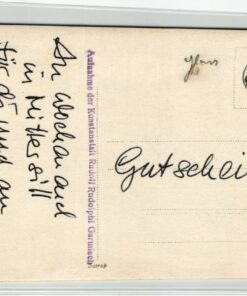 Ein Wochenend
in Mittersill
für dich und an
Aufnahme der Kunstanstalt Rudolf Rudolphi Garmisch
Gutschei